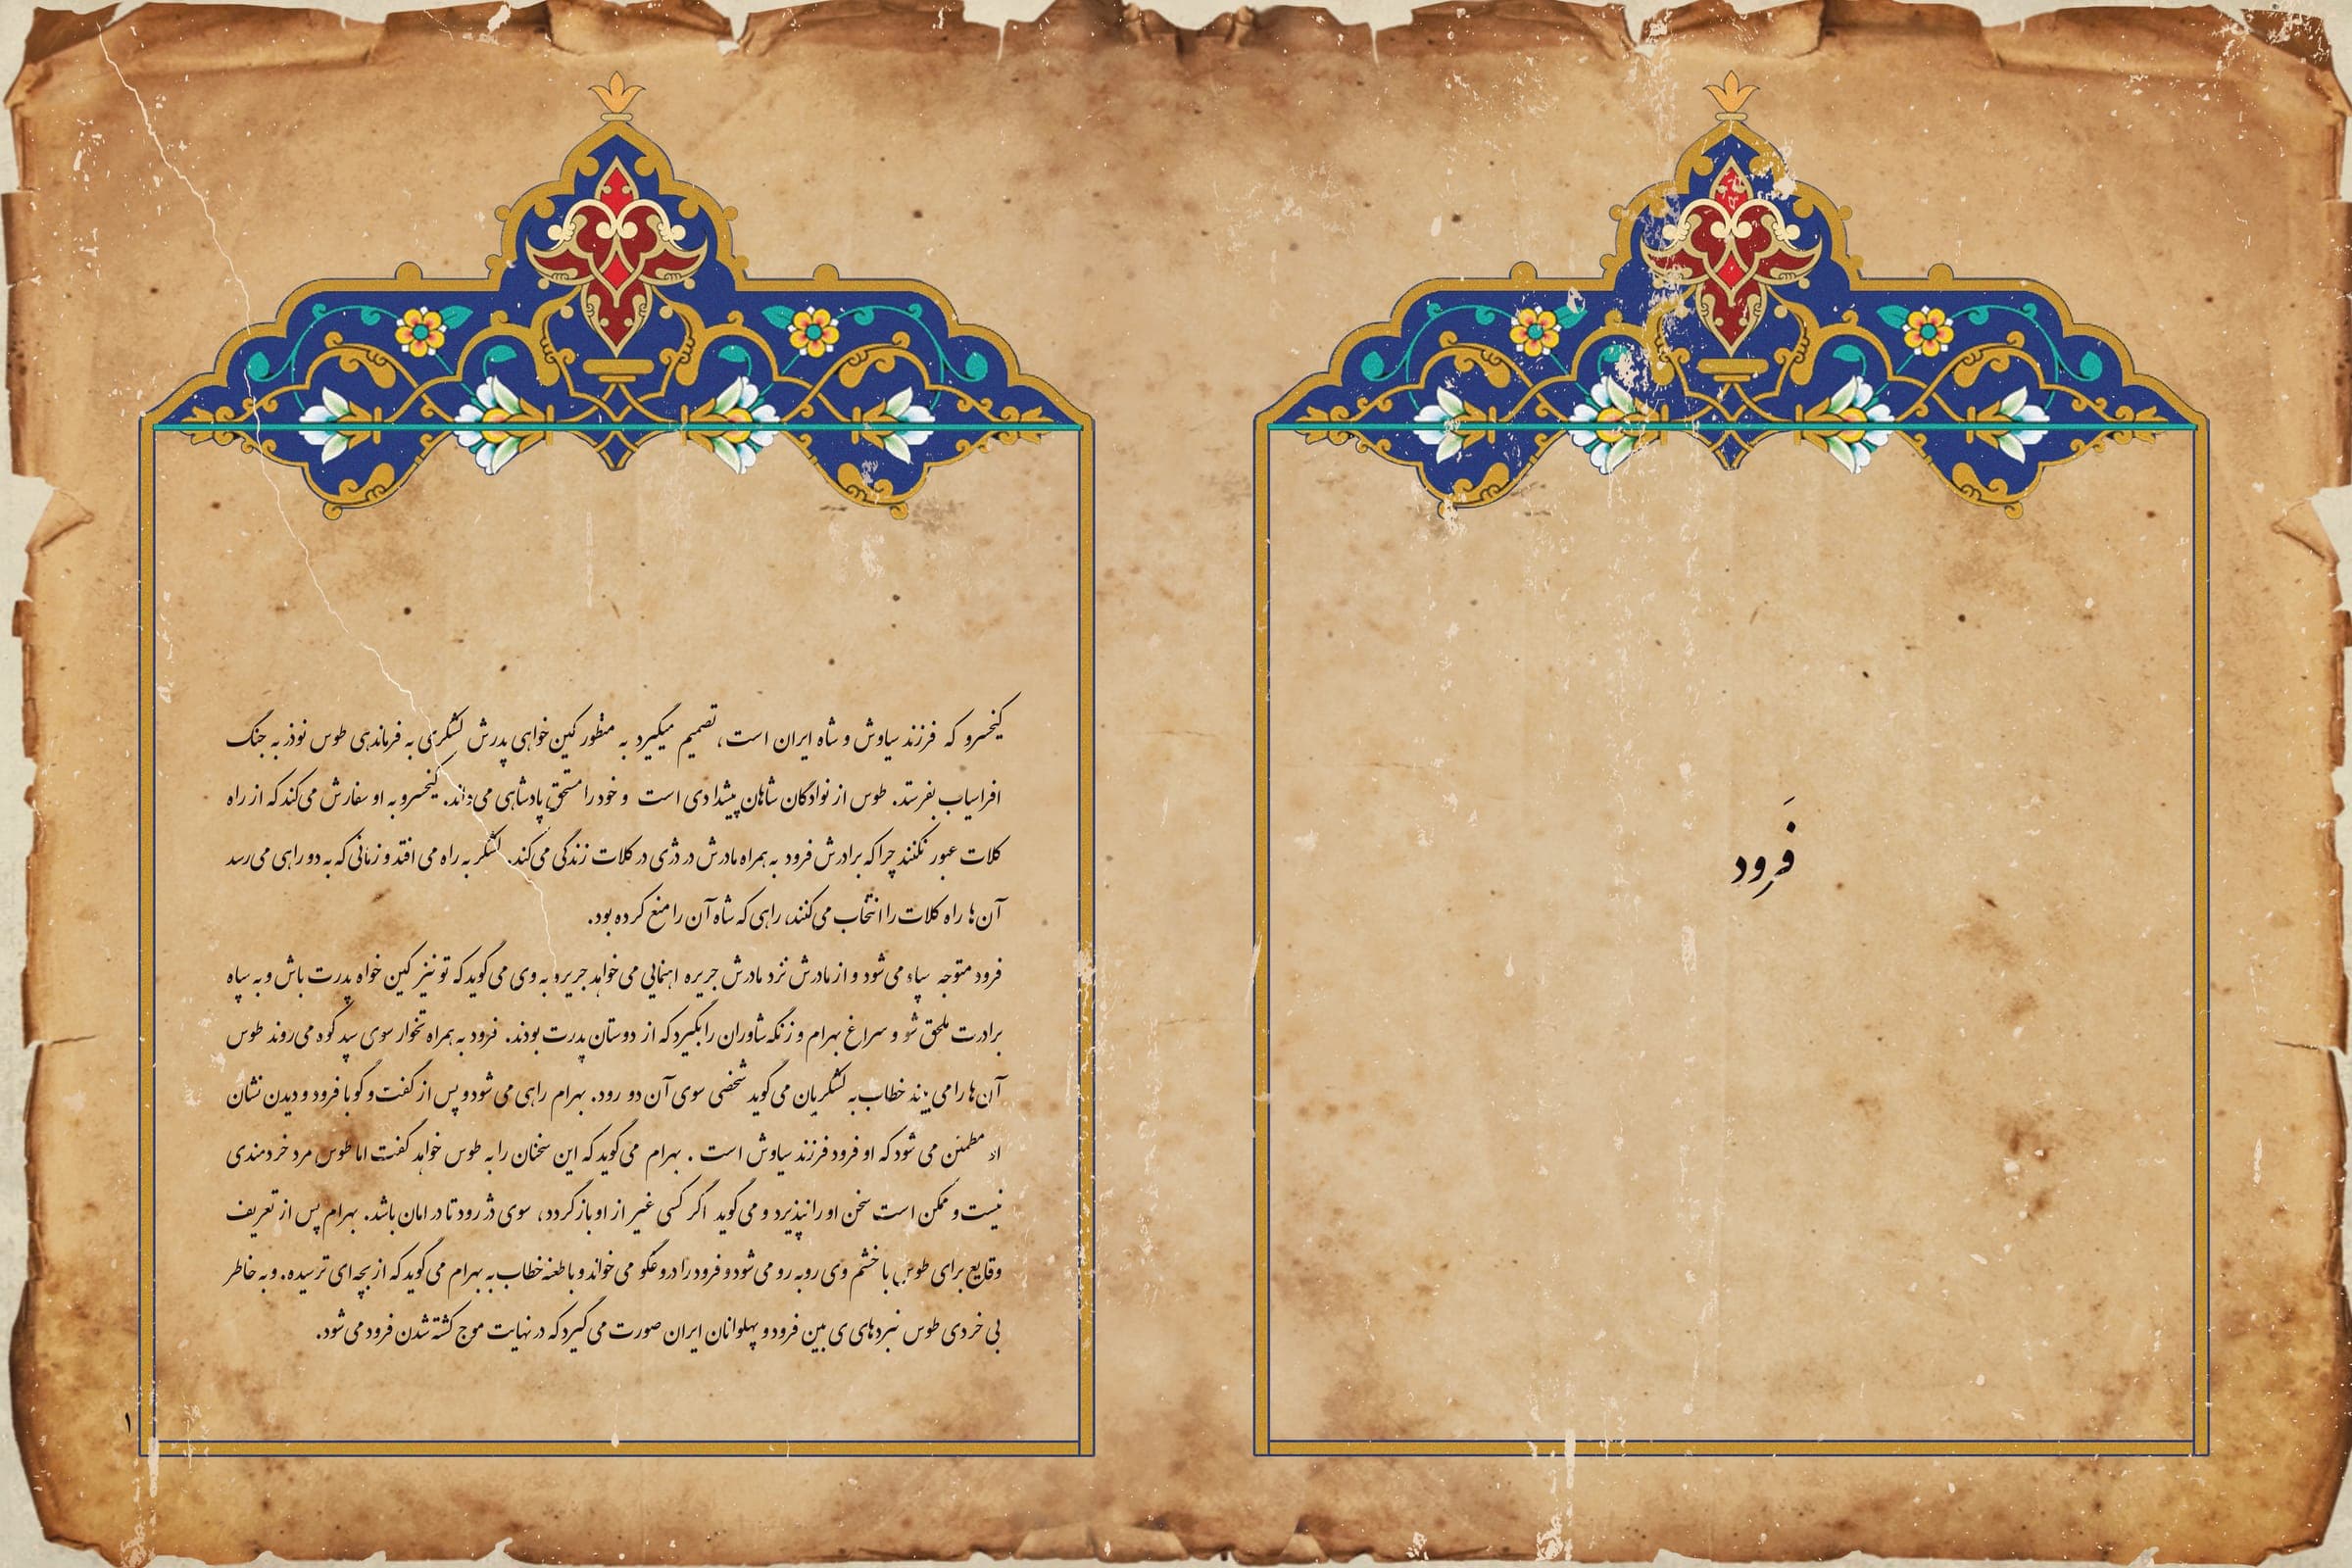 فَرود
کیخسرو که فرزند سیاوش و شاه ایران است، تصمیم میگیرد به منظور کین‌خواهی پدرش لشکری به فرماندهی طوس نوذر به جنگ
افراسیاب بفرستد. طوس از نوادگان شاهان پیشدادی است و خود را مستحق پادشاهی می‌داند. کیخسرو به او سفارش می‌کند که از راه
کلات عبور نکنند چرا که برادرش فرود به همراه مادرش در دژی در کلات زندگی می‌کند. لشکر به راه می افتد و زمانی که به دو راهی می‌رسد
آن‌ها راه کلات را انتخاب می‌کنند، راهی که شاه آن را منع کرده بود.
فرود متوجه سپاه می‌شود و از مادرش نزد مادرش جریره می‌خواهد جریره به وی می‌گوید که تو نیز کین خواه پدرت باش و به سپاه
برادرت ملحق شو و سراغ بهرام و زنگه‌شاوران را بگیرد که از دوستان پدرت بودند. فرود به همراه تخوار سوی سپد کوه می‌روند طوس
آن‌ها را می بیند خطاب به لشکریان می‌گوید شخصی سوی آن دو رود. بهرام راهی می شود و پس از گفت و گو با فرود و دیدن نشان
مطمئن می شود که او فرود فرزند سیاوش است . بهرام می‌گوید که این سخنان را به طوس خواهد گفت اما طوس مرد خردمندی
نیست و ممکن است سخن او را نپذیرد و می‌گوید اگر کسی غیر از او بازگردد، سوی دژ رود تا در امان باشد. بهرام پس از تعریف
وقایع برای طوس با خشم وی روبه رو می‌شود و فرود را دروغگو می خواند و با طعنه خطاب به بهرام می گوید که از بچه‌ای ترسیده. و به خاطر
بی خردی طوس نبردهای ی بین فرود و پهلوانان ایران صورت می گیرد که در نهایت موج کشته شدن فرود می‌شود.
۱